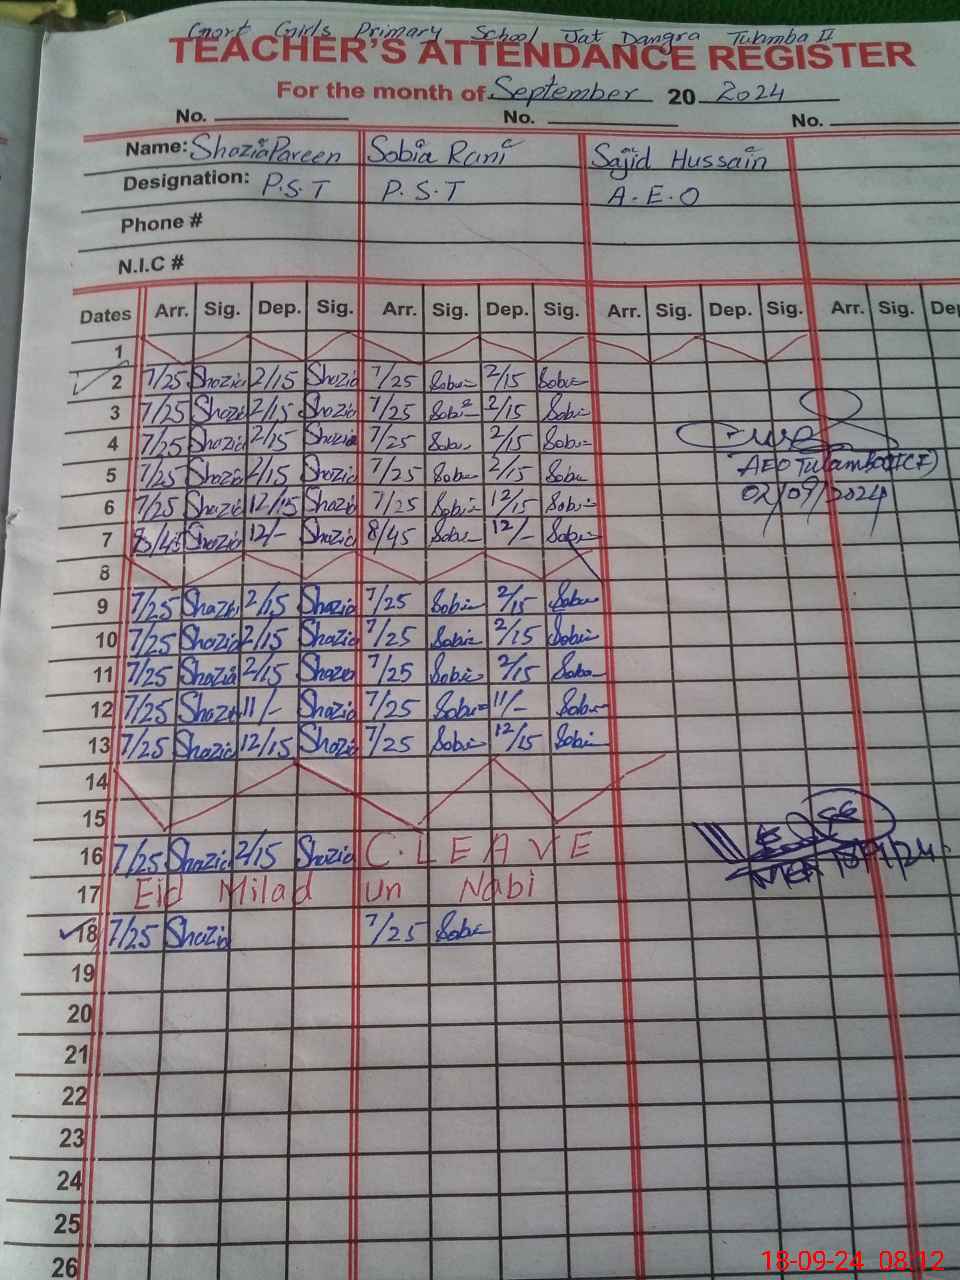 Govt Girls Primary School Jat Dangra Tulmba II
TEACHER'S ATTENDANCE REGISTER
For the month of September 20 2024
No. No. No.
Name: Shazia Parveen Sobia Rani Sajid Hussain
Designation: P.S.T P.S.T A.E.O
Phone #
N.I.C #
Dates Arr. Sig. Dep. Sig. Arr. Sig. Dep. Sig. Arr. Sig. Dep. Sig. Arr. Sig. Dep
1
2 7/25 Shazia 2/15 Shazia 7/25 Sobia 2/15 Sobia
3 7/25 Shazia 2/15 Shazia 7/25 Sobia 2/15 Sobia
4 7/25 Shazia 2/15 Shazia 7/25 Sobia 2/15 Sobia
5 7/25 Shazia 2/15 Shazia 7/25 Sobia 2/15 Sobia
AEO Tulamba (ICF)
6 7/25 Shazia 12/15 Shazia 7/25 Sobia 12/15 Sobia
02/09/2024
7 8/45 Shazia 12/- Shazia 8/45 Sobia 12/- Sobia
8
9 7/25 Shazia 2/15 Shazia 7/25 Sobia 2/15 Sobia
10 7/25 Shazia 2/15 Shazia 7/25 Sobia 2/15 Sobia
11 7/25 Shazia 2/15 Shazia 7/25 Sobia 2/15 Sobia
12 7/25 Shazia 11/- Shazia 7/25 Sobia 11/- Sobia
13 7/25 Shazia 12/15 Shazia 7/25 Sobia 12/15 Sobia
14
15
16 7/25 Shazia 2/15 Shazia C.LEAVE
MEA 18/9/24
17 Eid Milad un Nabi
18 7/25 Shazia 7/25 Sobia
19
20
21
22
23
24
25
26
18-09-24 08:12